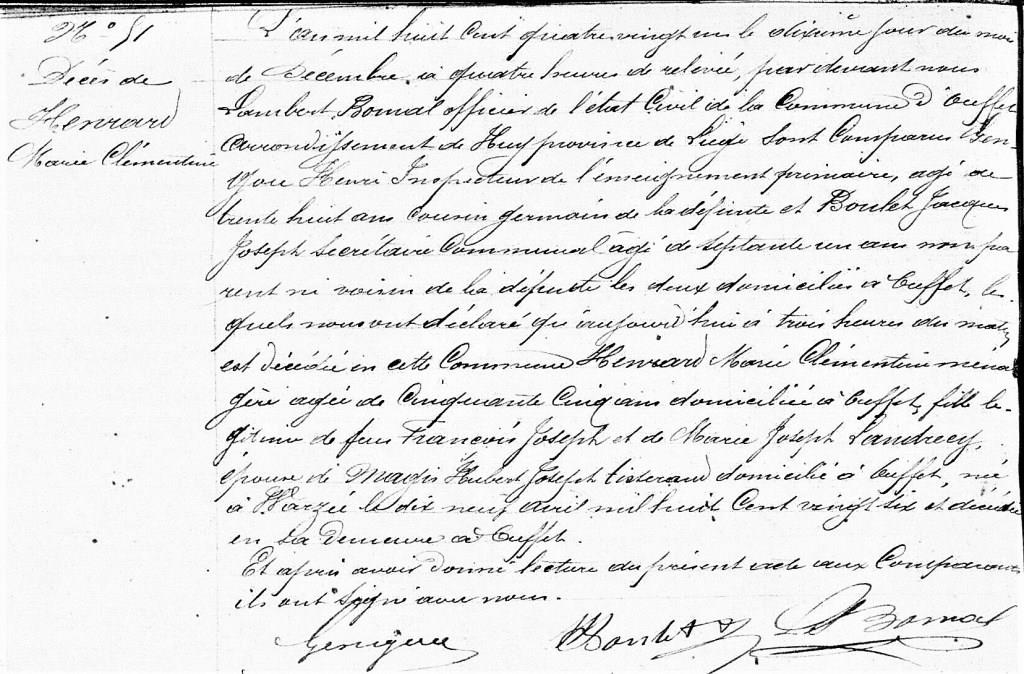 N° 51
Décès de
Henrard
Marie Clémentine
L'an mil huit cent quatre vingt un le dixième jour du mois
de Décembre à quatre heures de relevée, par devant nous
Lambert Bomal officier de l'état Civil de la Commune d'Ouffet
arrondissement de Huy province de Liége sont Comparus Gen-
goux Henri Inspecteur de l'enseignement primaire, agé de
trente huit ans cousin germain de la défunte et Boulet Jacques
Joseph secrétaire Communal âgé de septante un ans non pa
rent ni voisin de la défunte les deux domiciliés à Ouffet, les-
quels nous ont déclaré qu'aujourd'hui à trois heures du matin,
est décédée en cette Commune Henrard Marie Clémentine ména
gère agée de Cinquante Cinq ans domiciliée à Ouffet, fille lé-
gitime de feus François Joseph et de Marie Joseph Landrecy,
épouse de Magis Hubert Joseph tisserand domicilié à Ouffet, née
à Warzée le dix neuf avril mil huit Cent vingt six et décédée
en sa demeure à Ouffet.
Et après avoir donné lecture du présent acte aux Comparants
ils ont signé avec nous.
JJ Boulet L Bomal